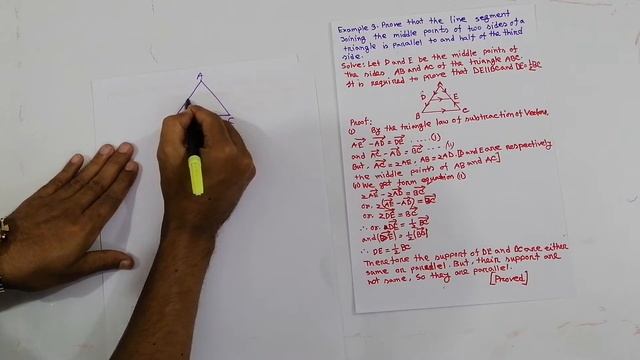 A
C
Example 3. Prove that the line segment
Joining the middle points of two sides of a
triangle is parallel to and half of the third
side.
Solve: Let D and E be the middle points of
the sides AB and AC of the triangle ABC.
It is required to prove that DE||BC and DE=½BC
A
D E
B C
Proof:
(i) By the triangle law of subtraction of vectors,
AE - AD = DE ......(i)
and AC - AB = BC .... (ii)
But, AC = 2AE, AB = 2AD. [D and E are respectively
the middle points of AB and AC]
(ii) We get form equation (ii)
2AE - 2AD = BC
or, 2(AE - AD) = BC
or, 2DE = BC
∴ or, DE = ½ BC
and |DE| = ½ |BC|
∴ DE = ½ BC
Therefore the support of DE and BC are either
same or parallel. But, their support are
not same, So they are parallel. [Proved]